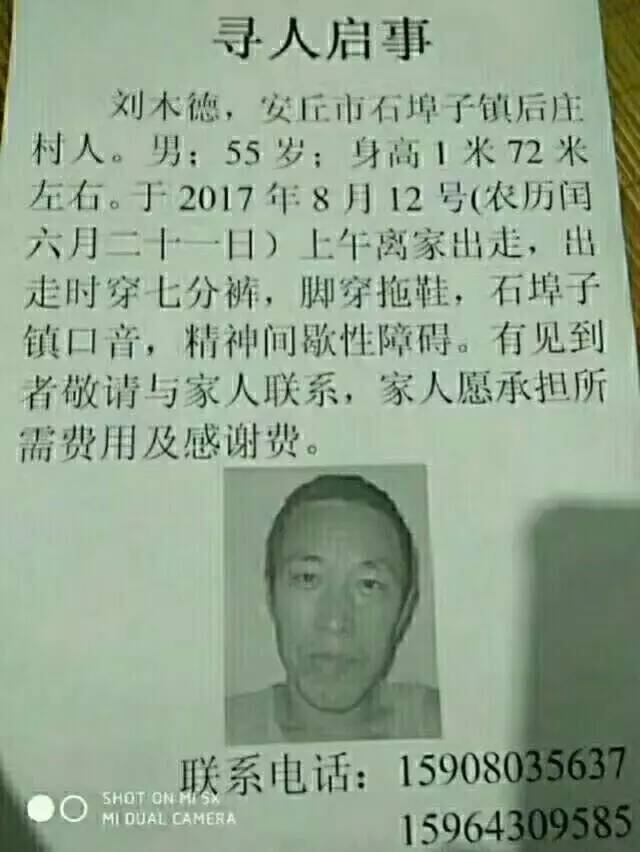 寻人启事
刘木德，安丘市石埠子镇后庄
村人。男；55岁；身高1米72米
左右。于2017年8月12号(农历闰
六月二十一日）上午离家出走，出
走时穿七分裤，脚穿拖鞋，石埠子
镇口音，精神间歇性障碍。有见到
者敬请与家人联系，家人愿承担所
需费用及感谢费。
联系电话：15908035637
15964309585
SHOT ON MI 5X
MI DUAL CAMERA